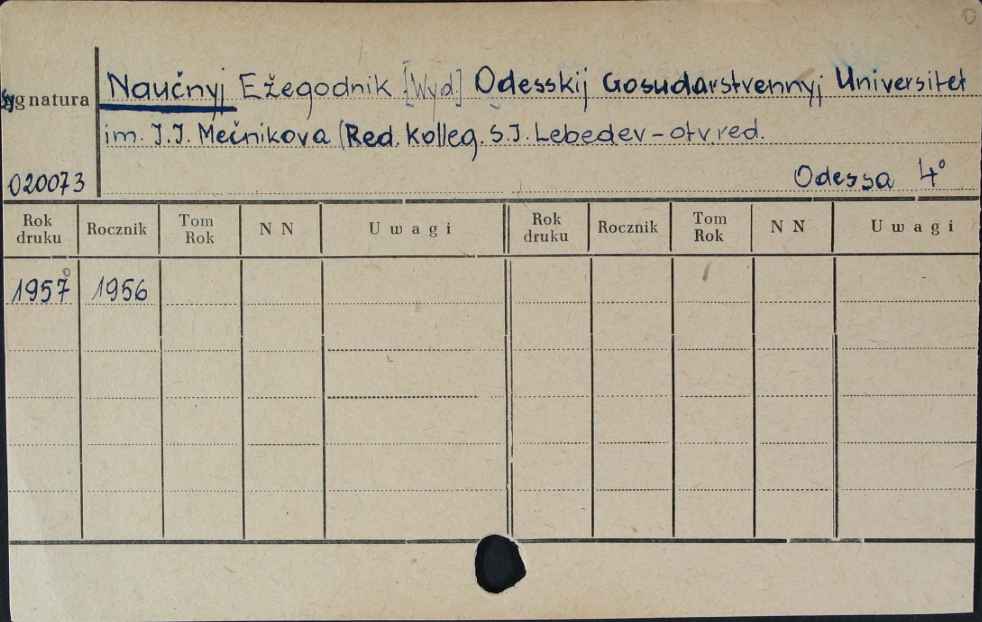 Naučnyj Ežegodnik [Wyd.] Odesskij Gosudarstvennyj Universitet
Sygnatura
im. I.I. Mečnikova (Red. Kolleg. S.I. Lebedev – otv. red.
020073 Odessa 4°
Rok druku Rocznik Tom Rok N N Uwagi Rok druku Rocznik Tom Rok N N Uwagi
1957 1956